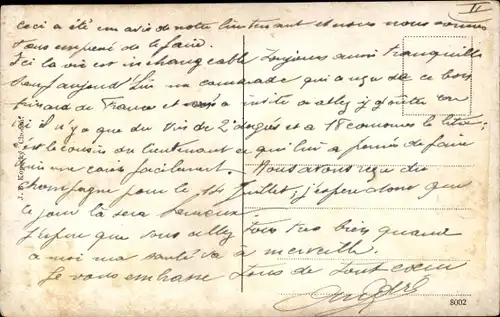 IV
ceci a été un avis de notre lieutenant et nous nous sommes
tous empressé de le faire.
Ici la vie est inchangeable toujours aussi tranquille
sauf aujourd'hui un camarade qui a reçu de ce bon
pinard de France et m'a invité a aller y goûter car
ici il n'y a que du vin de 2 degrés et a 18 couronnes le litre
est le cousin du lieutenant ce qui lui a permis de faire
venir une caisse facilement. Nous avons reçu du
champagne pour le 14 Juillet, j'espère donc que
ce jour là sera heureux
J'espère que vous allez tous très bien quand
a moi ma santé va à merveille
Je vous embrasse tous de tout cœur
André
8002